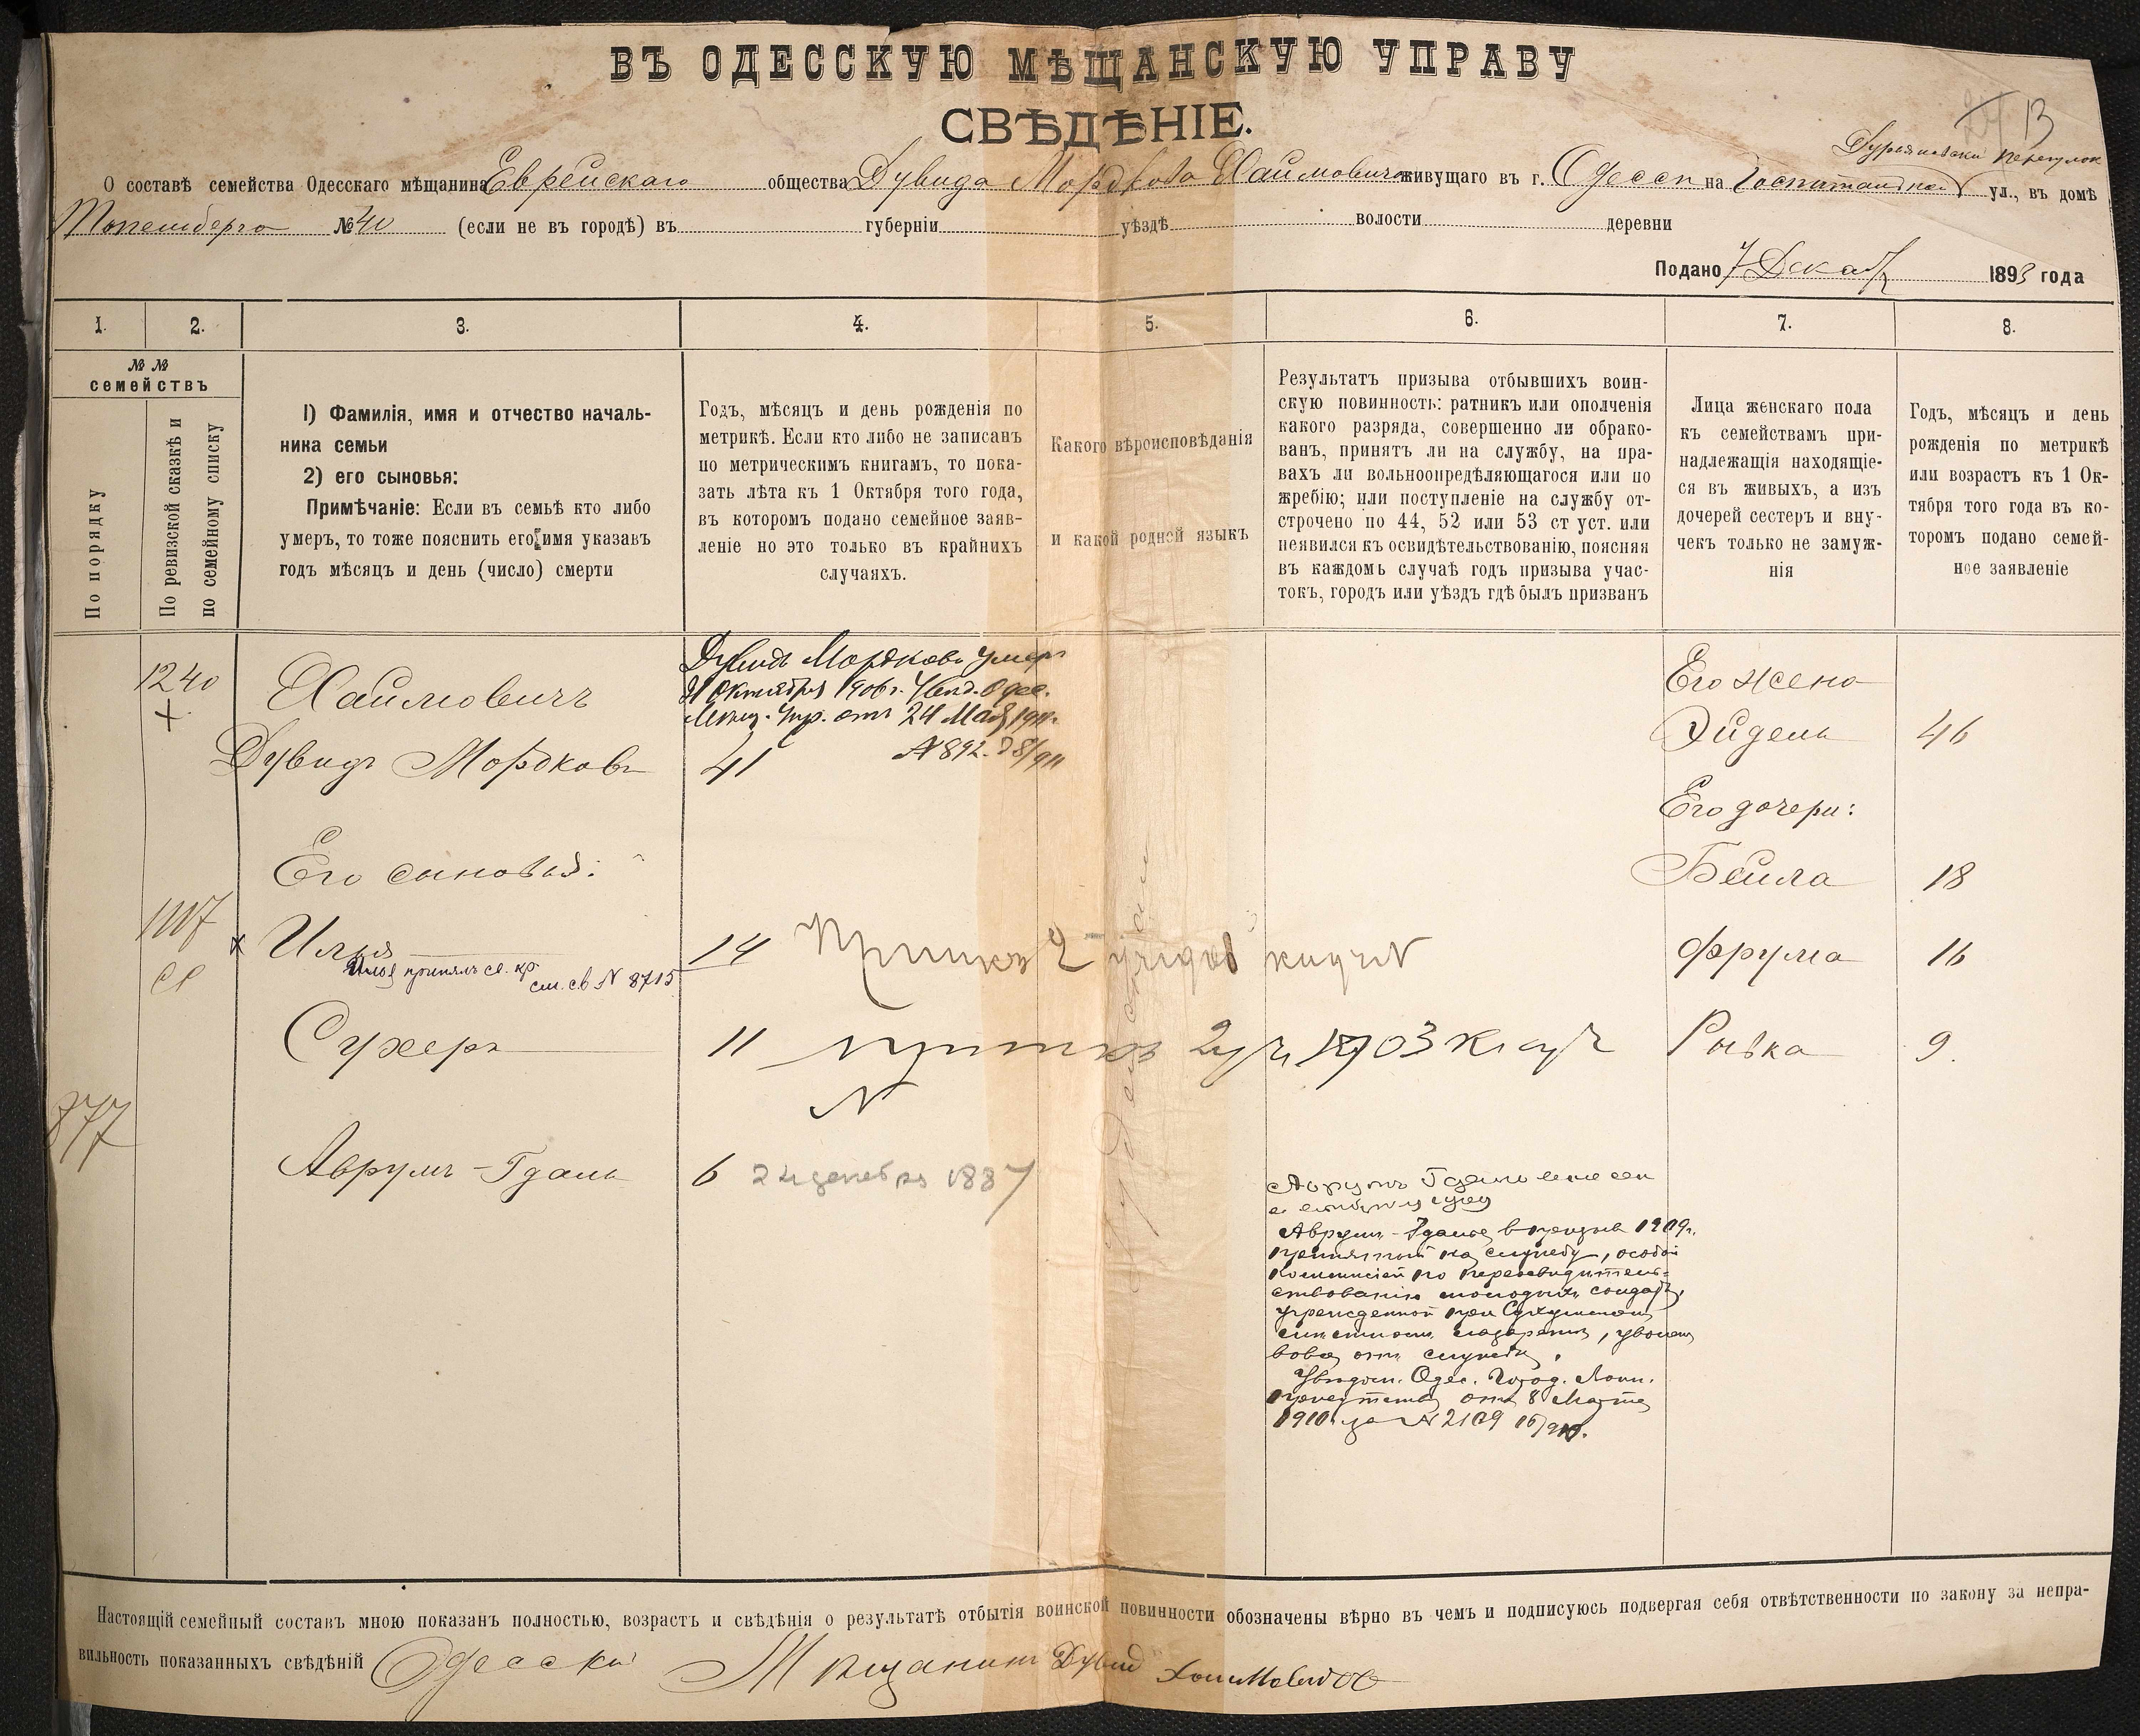 ВЪ ОДЕССКУЮ МѢЩАНСКУЮ УПРАВУ
СВѢДѢНІЕ.
13
О составѣ семейства Одесскаго мѣщанина Еврейскаго общества Дувида Мордкова Хаимовича живущаго въ г. Одессѣ на Госпитальной ул., въ домѣ
№ 40 (если не въ городѣ) въ губерніи уѣздѣ волости деревни
Подано 7 Декаб 1893 года
1. 2. 3. 4. 5. 6. 7. 8.
№ №
семействъ
По порядку
По ревизской сказкѣ и
по семейному списку
1) Фамилія, имя и отчество началь-
ника семьи
2) его сыновья:
Примѣчаніе: Если въ семьѣ кто либо
умеръ, то тоже пояснить его имя указавъ
годъ мѣсяцъ и день (число) смерти
Годъ, мѣсяцъ и день рожденія по
метрикѣ. Если кто либо не записанъ
по метрическимъ книгамъ, то пока-
зать лѣта къ 1 Октября того года,
въ которомъ подано семейное заяв-
леніе но это только въ крайнихъ
случаяхъ.
Какого вѣроисповѣданія
и какой родной языкъ
Результатъ призыва отбывшихъ воин-
скую повинность: ратникъ или ополченія
какого разряда, совершенно ли обрако-
ванъ, принятъ ли на службу, на пра-
вахъ ли вольноопредѣляющагося или по
жребію; или поступленіе на службу от-
строчено по 44, 52 или 53 ст уст. или
неявился къ освидѣтельствованію, поясняя
въ каждомъ случаѣ годъ призыва учас-
токъ, городъ или уѣздъ гдѣ былъ призванъ
Лица женскаго пола
къ семействамъ при-
надлежащія находящіе-
ся въ живыхъ, а изъ
дочерей сестеръ и вну-
чекъ только не замуж-
нія
Годъ, мѣсяцъ и день
рожденія по метрикѣ
или возрастъ къ 1 Ок-
тября того года въ ко-
торомъ подано семей-
ное заявленіе
1240
Хаимовичъ
Дувидъ Мордковъ
Дувидъ Мордковъ умеръ
21 октября 1906 г. Увѣд. Одес.
Мѣщ. Упр. отъ 24 Мая 1911.
№ 892.
41
Его жена
Эйдель 46
Его дочери:
Его сыновья:
Бейла 18
1117
Илья 14
Илья принялъ св. кр.
см. св № 8715
Фрума 16
Сухеръ 11 1903
Рывка 9.
877
Аврумъ-Гдаль 6 24 декабря 1887
Аврумъ Гдаль
Аврумъ-Гдаль въ призывѣ 1909 г.
принятый на службу, особой
Коммисіей по переосвидѣтель-
ствованію молодыхъ солдатъ,
учрежденной при Сухумскомъ
мѣстномъ лазаретѣ, уволенъ
вовсе отъ службы.
Увѣдом. Одес. Город. Воин.
присутствія отъ 8 Марта
1910 г за № 2109
Настоящій семейный составъ мною показанъ полностью, возрастъ и свѣдѣнія о результатѣ отбытія воинской повинности обозначены вѣрно въ чемъ и подписуюсь подвергая себя отвѣтственности по закону за непра-
вильность показанныхъ свѣдѣній Одесскій Мѣщанинъ Дувид Хаимович